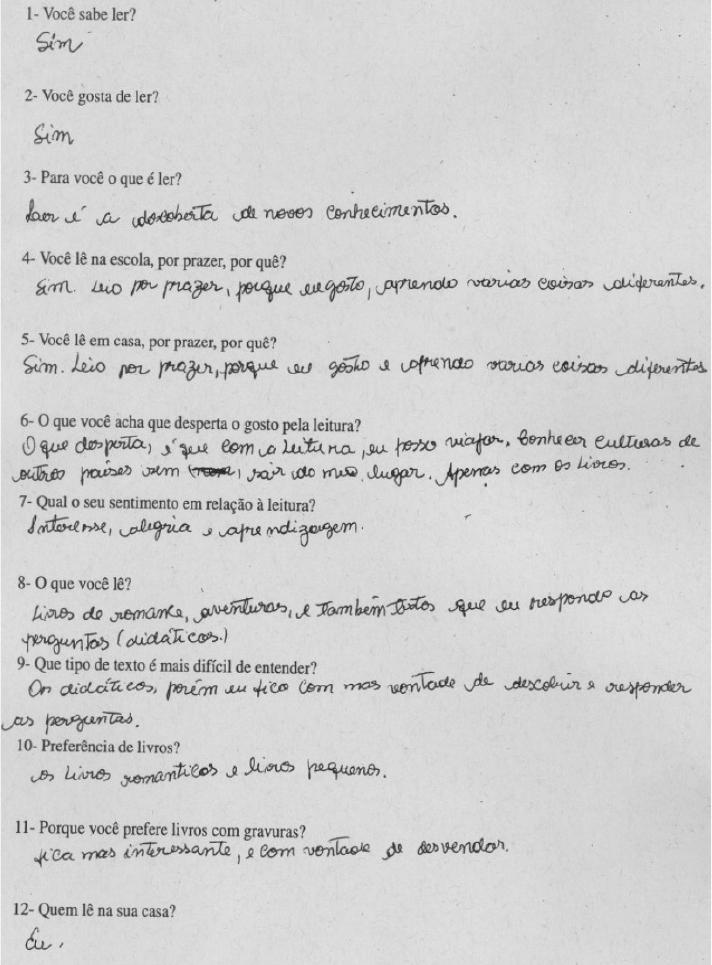 1- Você sabe ler?
Sim
2- Você gosta de ler?
Sim
3- Para você o que é ler?
Laer é a descoberta de novos conhecimentos.
4- Você lê na escola, por prazer, por quê?
Sim. Leio por prazer, porque eu gosto, aprendo varias coisas diferentes.
5- Você lê em casa, por prazer, por quê?
Sim. Leio por prazer, porque eu gosto e aprendo varias coisas diferentes
6- O que você acha que desperta o gosto pela leitura?
O que desperta, é que com a leitura, eu posso viajar, conhecer culturas de
outros países sem sair do meu lugar. Apenas com os livros.
7- Qual o seu sentimento em relação à leitura?
Interesse, alegria e aprendizagem.
8- O que você lê?
Livros de romance, aventuras, e também textos que eu respondo as
perguntas (didáticos.)
9- Que tipo de texto é mais difícil de entender?
Os didáticos, porém eu fico com mas vontade de descobrir e responder
as perguntas.
10- Preferência de livros?
os Livros romanticos e livros pequenos.
11- Porque você prefere livros com gravuras?
fica mas interessante, e com vontade de desvendar.
12- Quem lê na sua casa?
Eu.